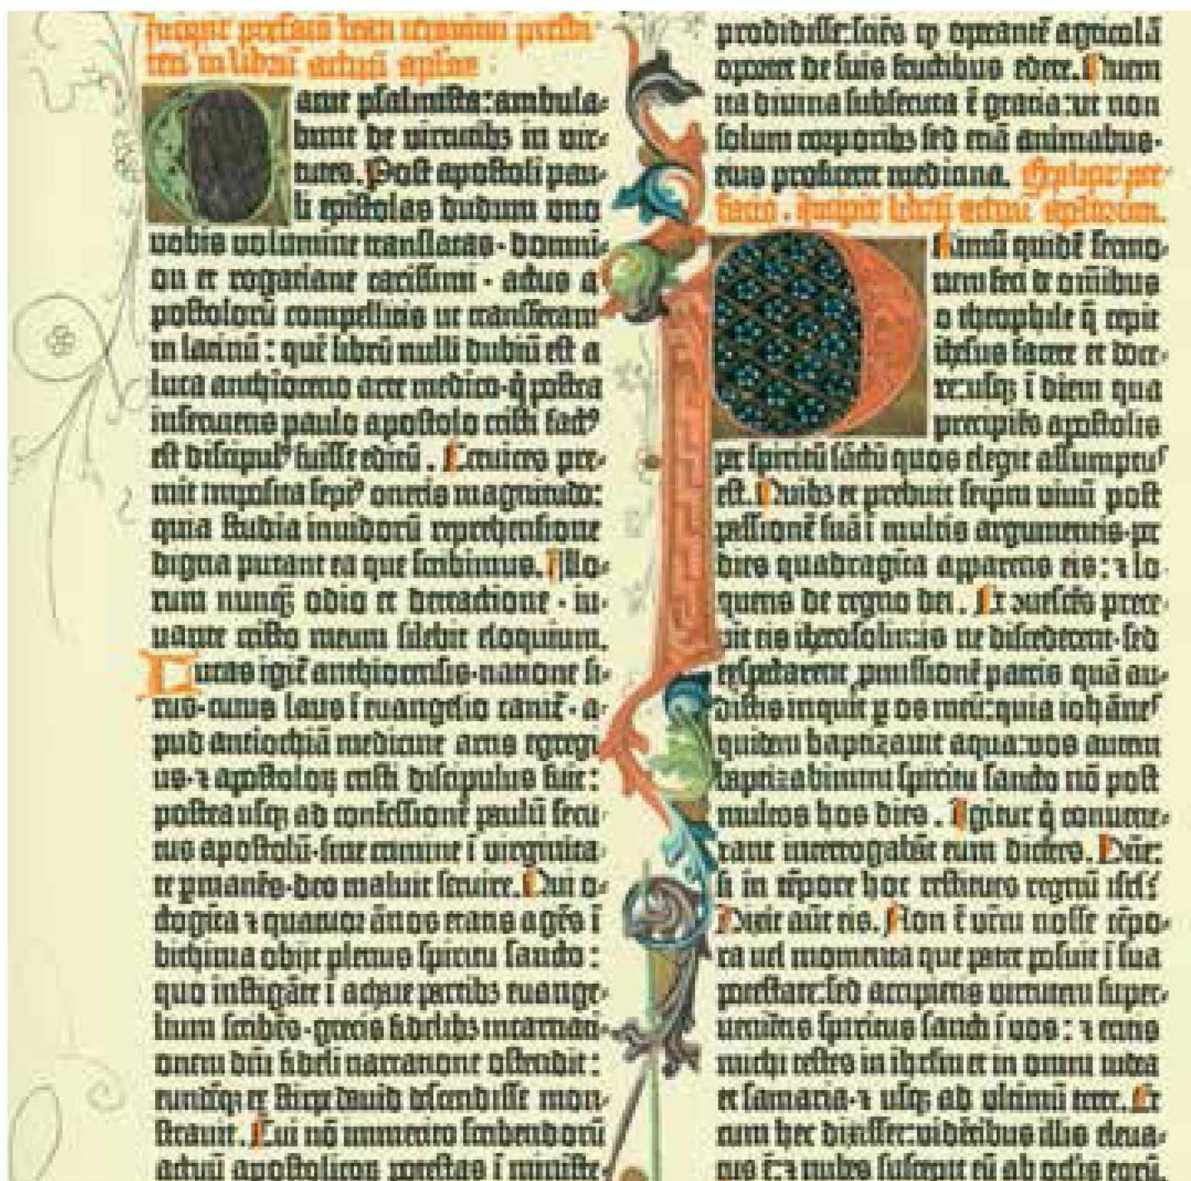 Incipit prefacio beati ieronimi presbi-
teri in librū actuū apl'oꝝ :
Canit psalmista: ambula-
bunt de virtutibꝫ in vir-
tutes. Post apostoli pau-
li epistolas dudum uno
vobis volumine translatas· domni-
on et rogatiane carissimi · actus a
postolorū compellitis ut transferam
in latinū : quē librū nulli dubiū est a
luca anthioceno arte medico· q̄ postea
inserviens paulo apostolo cristi factꝰ
est discipulꝰ fuisse editū . Cervices pre-
mit imposita sepiꝰ oneris magnitudo:
quia studia invidorū reprehensione
digna putant ea que scribimus. Illo-
rum nunq̄ odio et detractione · iu-
vante cristo meum silebit eloquium.
Lucas igit̄ anthiocensis· natione si-
rus· cuius laus ī evangelio canit̄ · a-
pud antiochiā medicine artis egregi
us· ⁊ apostoloꝝ cristi discipulus fuit:
postea usqꝫ ad confessionē paulū secu-
tus apostolū· sine crimine ī virginita-
te pmanēs· deo maluit servire. Qui o-
ctogīta ⁊ quatuor ānos etatis agēs ī
bithinia obijt plenus spiritu sancto :
quo instigāte ī achaie partibꝫ evange-
lium scribēs· grecis fidelibꝫ incarnati-
onem dn̄i fideli narratione ostendit :
eundēqꝫ ex stirpe david descendisse mon-
stravit. Cui nō immerito scribendorū
actuū apostolicoꝝ potestas ī ministe-
prodidisse: sciēs q̄ operantē agricolā
oportet de suis fructibus edere. Quem
ita divina subsecuta ē gratia: ut non
solum corporibꝫ sed etiā animabus·
eius proficeret medicina. Explicit pre-
facio. Incipit liber actuū apl'orum.
Primū quidē sermo-
nem feci de om̄ibus
o theophile q̄ cepit
ih̄sus facere et doce-
re: usqꝫ ī diem qua
precipiēs apostolis
per spiritū sāctū quos elegit assumptꝰ
est. Quibꝫ et prebuit seipm̄ vivū post
passionē suā ī multis argumentis· per
dies quadragīta apparens eis: ⁊ lo-
quens de regno dei . Et cōvescēs prece-
pit eis iherosolimis ne discederent· sed
expectarent pmissionē patris quā au-
distis inquit p os meū: quia iohānes
quidem baptizavit aqua: vos autem
baptizabimini spiritu sancto nō post
multos hos dies . Igitur q̄ convene-
rant interrogabāt eum dicētes. Dn̄e:
si in tēpore hoc restitues regnū isrl'?
Dixit aūt eis. Non ē vr̄m nosse tēpo-
ra vel momenta que pater posuit ī sua
potestate: sed accipietis virtutem super-
venientis spiritus sancti ī vos : ⁊ eritis
michi testes in ihrl'm et in omni iudea
et samaria· ⁊ usqꝫ ad ultimū terre. Et
cum hec dixisset: vidētibus illis eleva-
tus ē: ⁊ nubes suscepit eū ab oculis eorū.